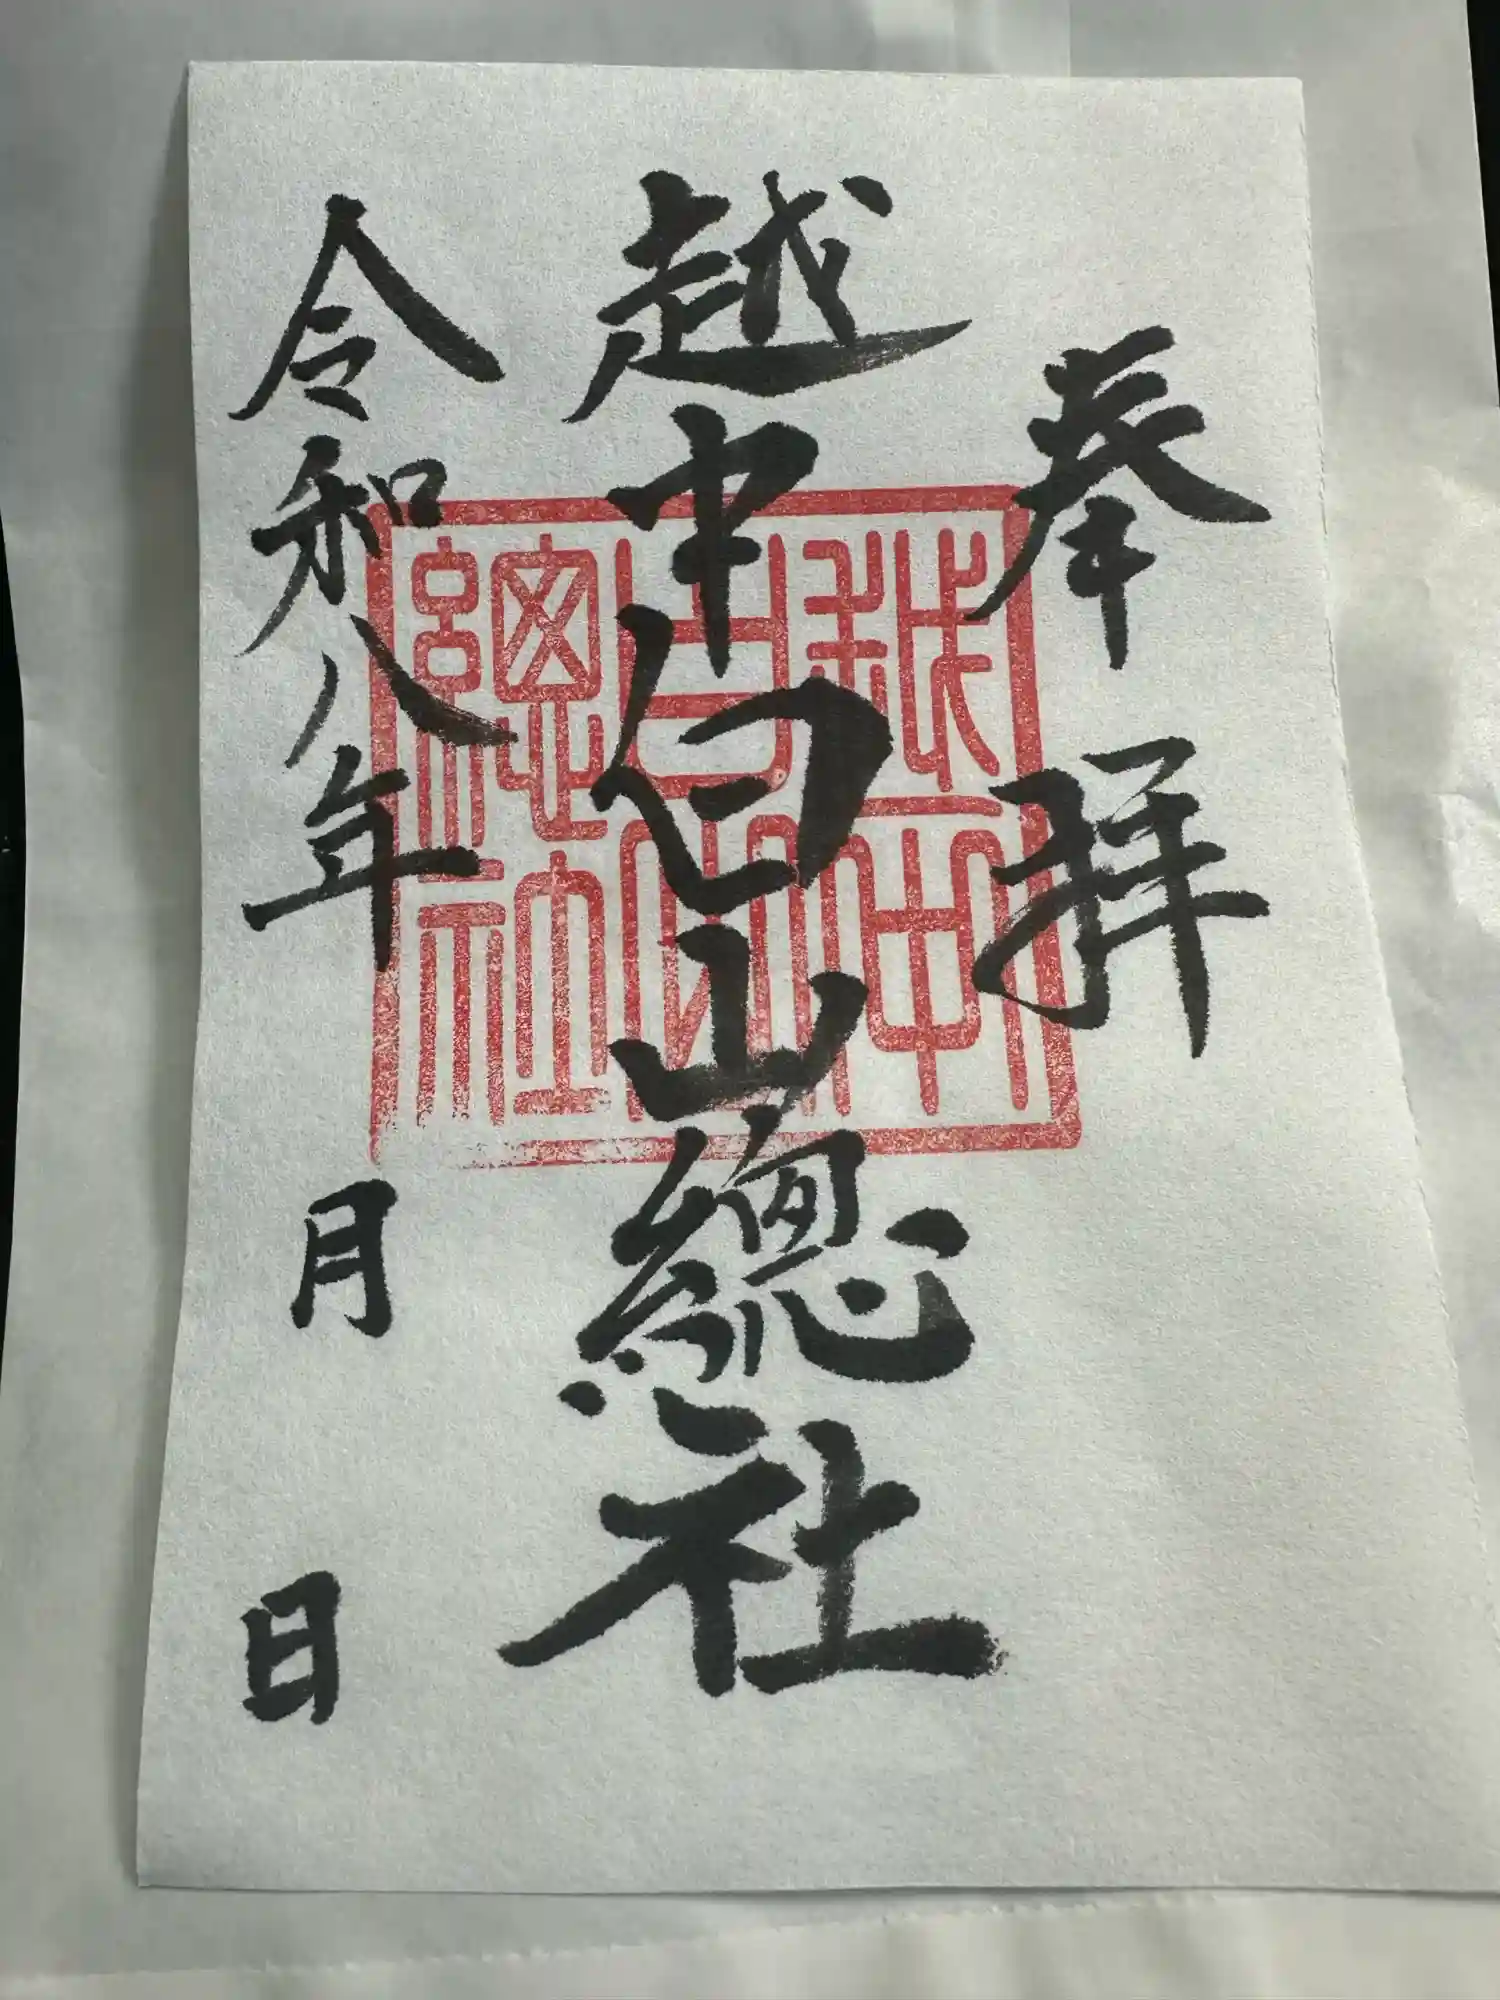 奉拝
越中白山總社
令和八年　月　日
越中
白山
總社